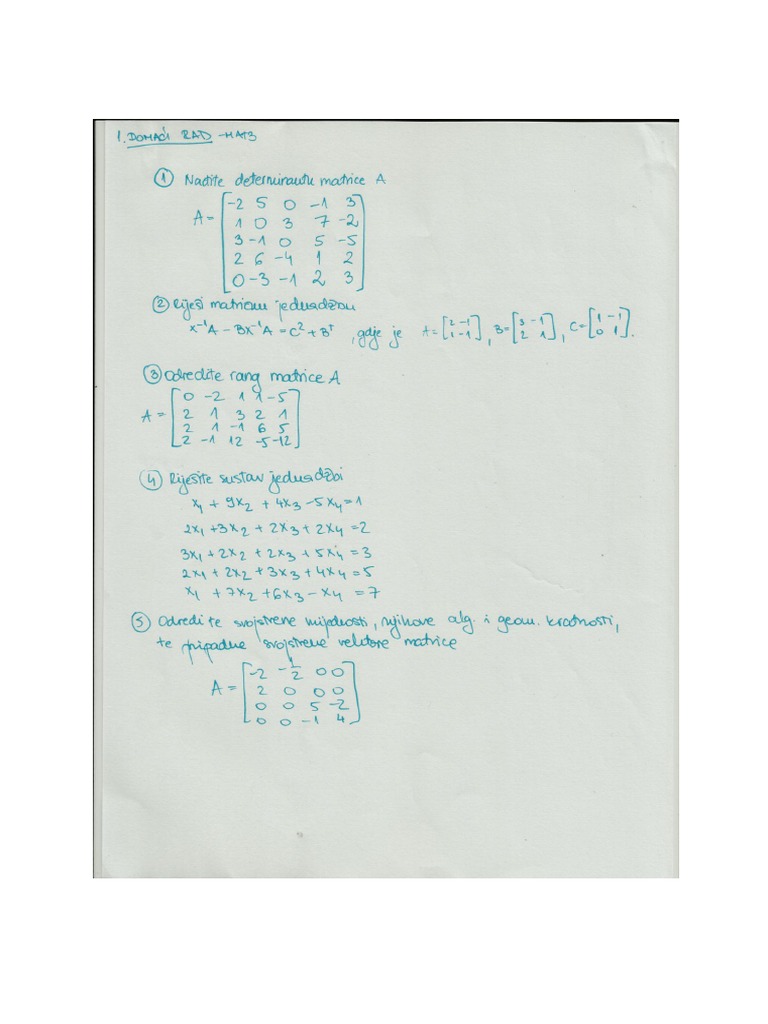 1. DOMAĆI RAD - MAT3
① Nađite determinantu matrice A
A = [ -2 5 0 -1 3
1 0 3 7 -2
3 -1 0 5 -5
2 6 -4 1 2
0 -3 -1 2 3 ]
② Riješi matričnu jednadžbu
X⁻¹A - BX⁻¹A = C² + Bᵀ, gdje je A = [ 2 -1 ; 1 -1 ], B = [ 3 -1 ; 2 1 ], C = [ 1 -1 ; 0 1 ].
③ Odredite rang matrice A
A = [ 0 -2 1 1 -5
2 1 3 2 1
2 1 -1 6 5
2 -1 12 -5 -12 ]
④ Riješite sustav jednadžbi
x₁ + 9x₂ + 4x₃ - 5x₄ = 1
2x₁ + 3x₂ + 2x₃ + 2x₄ = 2
3x₁ + 2x₂ + 2x₃ + 5x₄ = 3
2x₁ + 2x₂ + 3x₃ + 4x₄ = 5
x₁ + 7x₂ + 6x₃ - x₄ = 7
⑤ Odredite svojstvene vrijednosti, njihove alg. i geom. kratnosti,
te pripadne svojstvene vektore matrice
A = [ -2 -1/2 0 0
2 0 0 0
0 0 5 -2
0 0 -1 4 ]